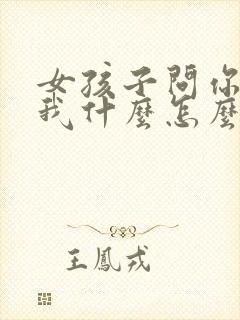 女孩子問你
我什麼怎麼
王鳳戎